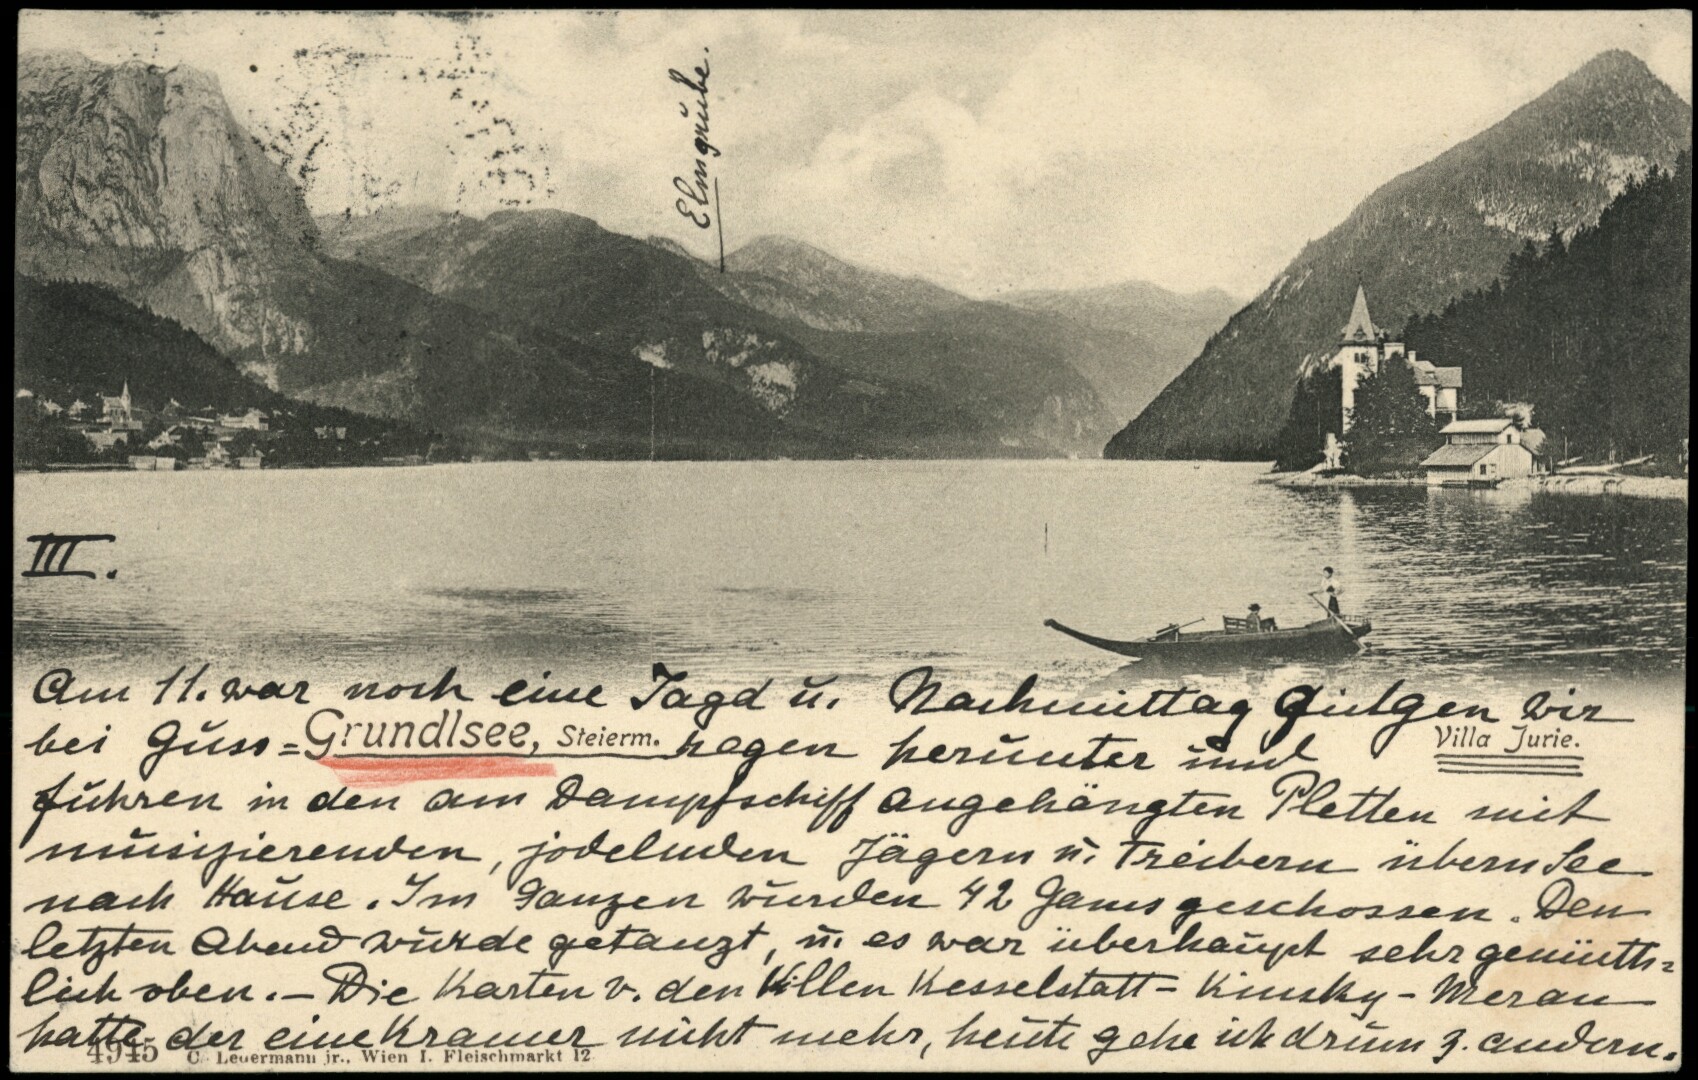 Elmgrube.
III.
Am 11. war noch eine Jagd u. Nachmittag gingen wir
bei Guss= Grundlsee, Steierm. hagen herunter und
Villa Jurie.
fuhren in den am Dampfschiff angehängten Pletten mit
musizierenden, jodelnden Jägern u. Treibern übern See
nach Hause. Im Ganzen wurden 42 Gams geschossen. Den
letzten Abend wurde getanzt, u. es war überhaupt sehr gemüth=
lich oben. – Die Karten v. den Villen Kesselstatt – Kinsky – Meran
hatte der eine Kramer nicht mehr, heute gehe ich drum z. andern.
4945 C. Ledermann jr., Wien I. Fleischmarkt 12